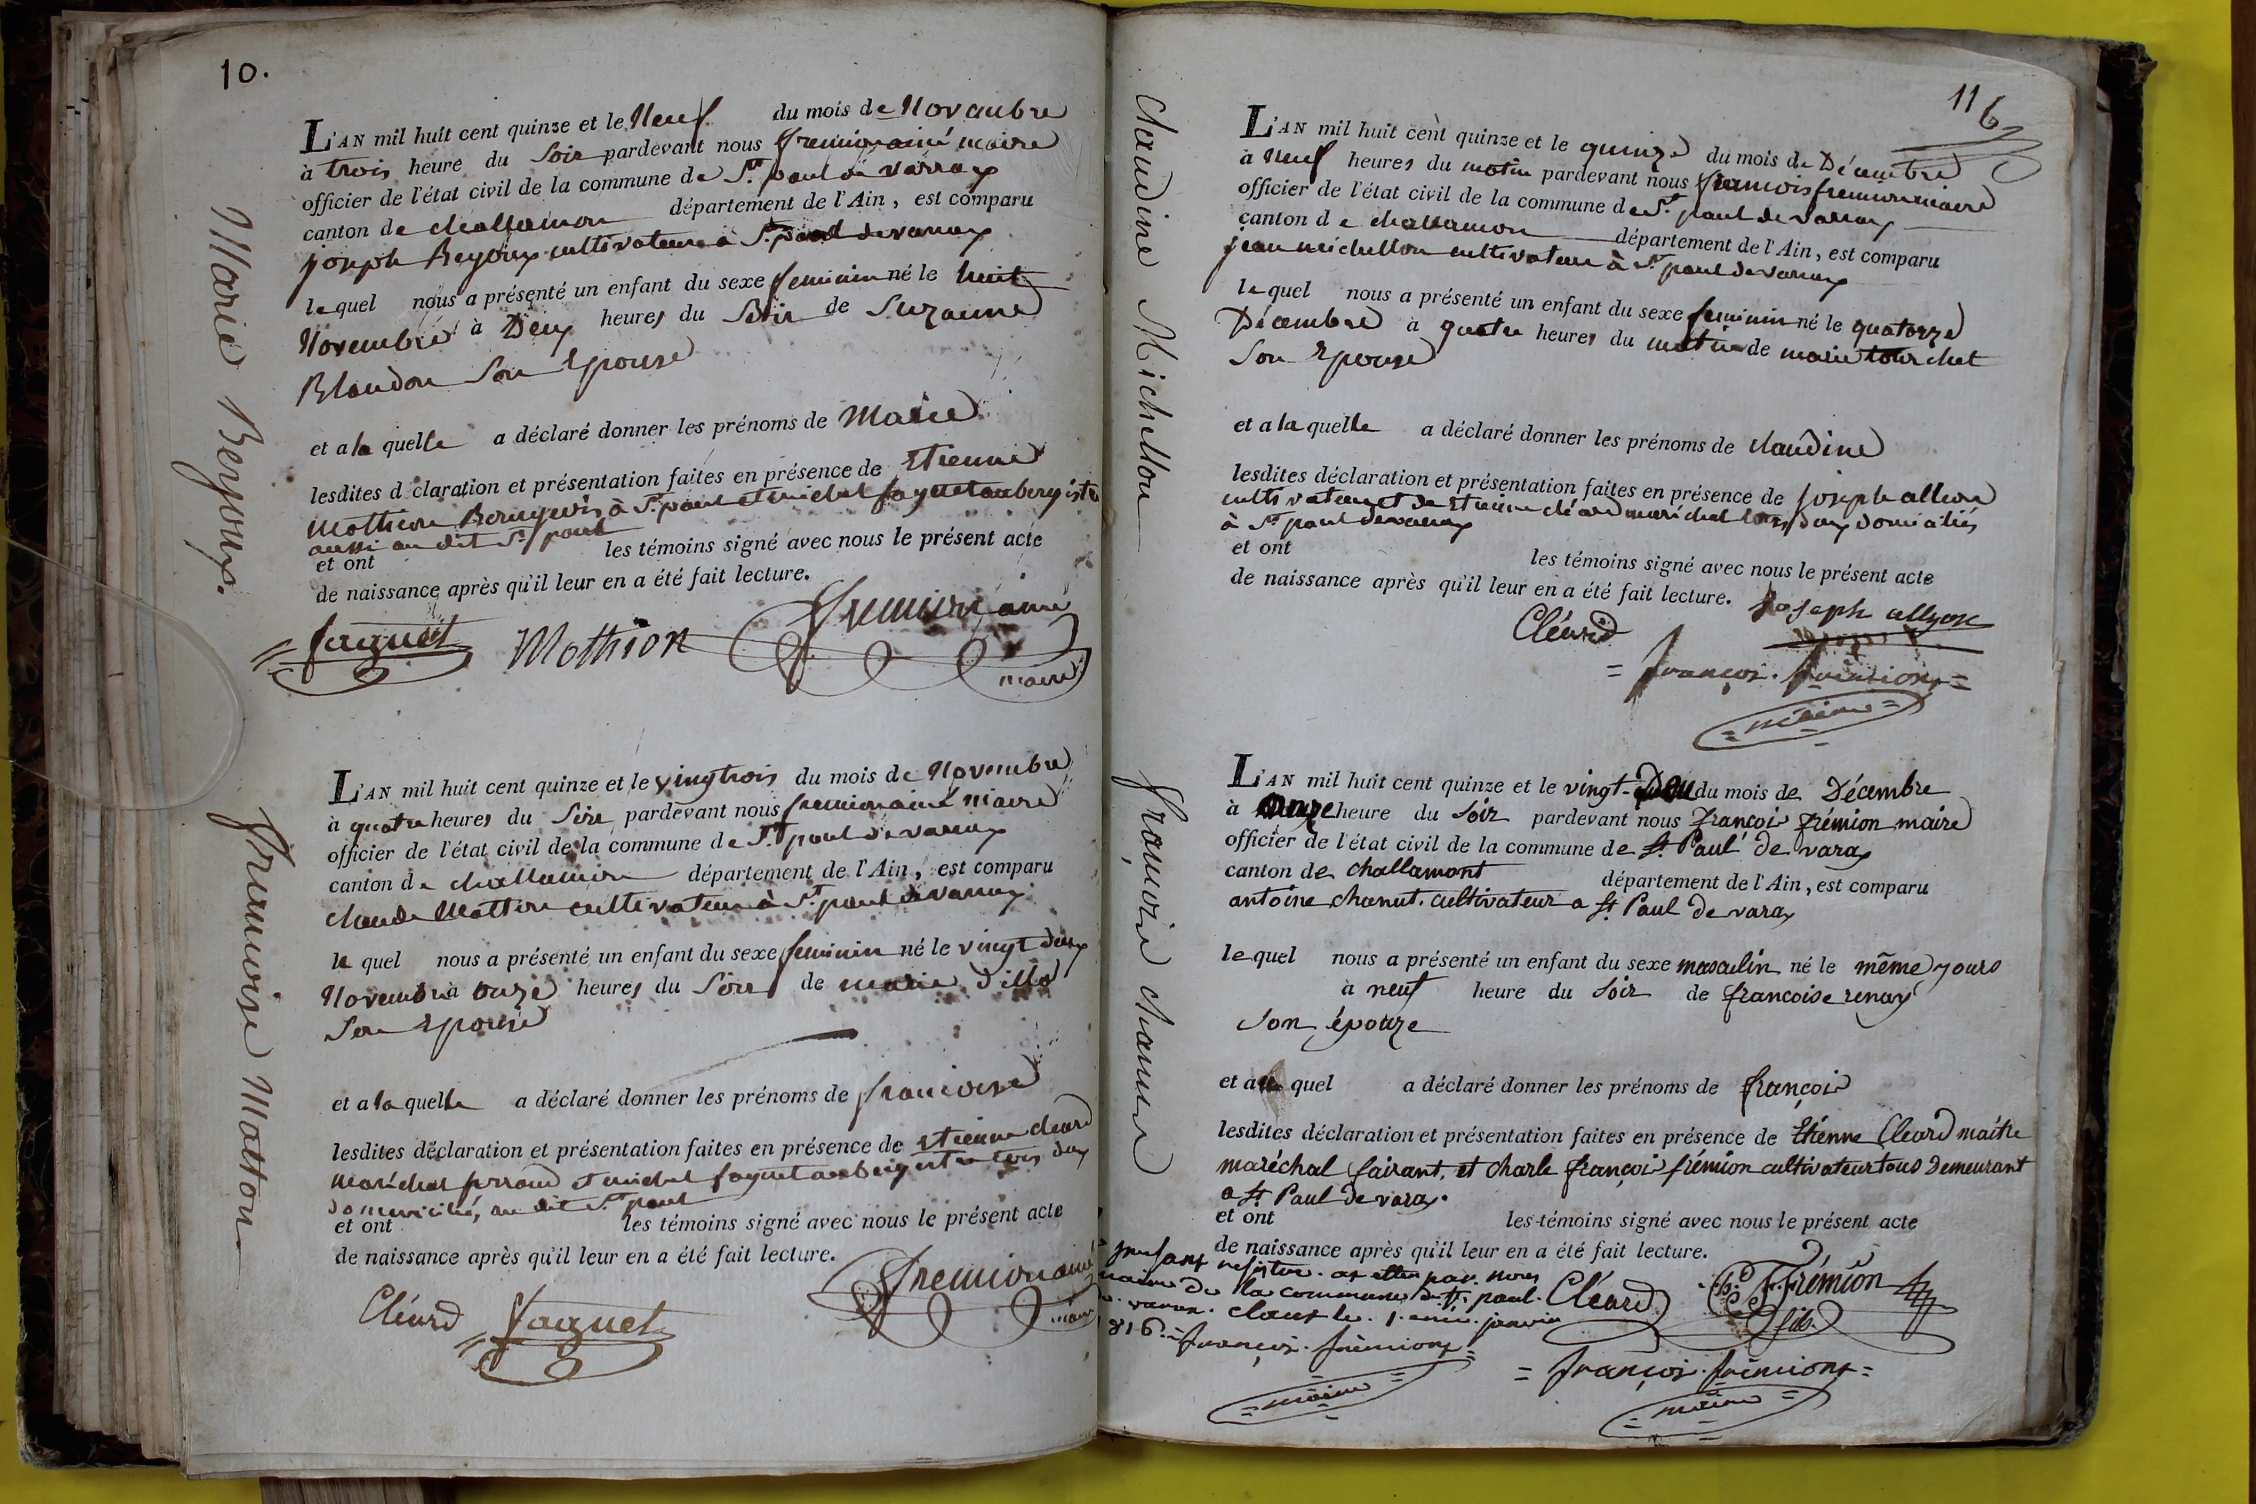 10.
Marie Beyoux.
L'AN mil huit cent quinze et le Neuf du mois de Novembre
à trois heure du Soir pardevant nous fremion ainé maire
officier de l'état civil de la commune de St. paul de varax
canton de challamon département de l'Ain, est comparu
joseph Beyoux cultivateur à St. paul de varax
lequel nous a présenté un enfant du sexe feminin né le huit
Novembre à Deux heures du Soir de Suzanne
Blondon Son Epouse
et a la quelle a déclaré donner les prénoms de Marie
lesdites d claration et présentation faites en présence de Etienne
Mothion Bourgeois à St. paul et michel faguet aubergiste
aussi au dit St. paul
et ont les témoins signé avec nous le présent acte
de naissance après qu'il leur en a été fait lecture.
faguet Mothion fremion ainé
maire
françoise Matton
L'AN mil huit cent quinze et le vingtrois du mois de Novembre
à quatre heures du Soir pardevant nous fremion ainé maire
officier de l'état civil de la commune de St. paul de varax
canton de challamon département de l'Ain, est comparu
claude Matton cultivateur à St. paul de varax
le quel nous a présenté un enfant du sexe feminin né le vingt deux
Novembre à onze heures du Soir de marie
Son Epouse
et a la quelle a déclaré donner les prénoms de francoise
lesdites déclaration et présentation faites en présence de Etienne cleard
maréchal ferrand et michel faguet aubergiste tous deux
domiciliés au dit St. paul
et ont les témoins signé avec nous le présent acte
de naissance après qu'il leur en a été fait lecture.
Cléard faguet fremion ainé
maire
11
Claudine Michellon
L'AN mil huit cent quinze et le quinze du mois de Décembre
à Neuf heures du matin pardevant nous francois fremion maire
officier de l'état civil de la commune de St. paul de varax
canton de challamon département de l'Ain, est comparu
jean michellon cultivateur à St. paul de varax
lequel nous a présenté un enfant du sexe feminin né le quatorze
Décembre à quatre heures du matin de marie tourchet
Son Epouse
et a la quelle a déclaré donner les prénoms de claudine
lesdites déclaration et présentation faites en présence de joseph allion
cultivateur et de Etienne cléard maréchal tous deux domiciliés
à St. paul de varax
et ont les témoins signé avec nous le présent acte
de naissance après qu'il leur en a été fait lecture.
Cléard Joseph allyon
= françois. frémiont =
maire
françoise chanut
L'AN mil huit cent quinze et le vingt-Deu du mois de Décembre
à onze heure du Soir pardevant nous françois frémion maire
officier de l'état civil de la commune de St. Paul de varax
canton de challamont département de l'Ain, est comparu
antoine chanut. cultivateur a St. Paul de varax
lequel nous a présenté un enfant du sexe masculin né le même jours
à neuf heure du Soir de francoise renax
Son épouze
et au quel a déclaré donner les prénoms de françois
lesdites déclaration et présentation faites en présence de Etienne Cleard maitre
maréchal fairant, et charle françois frémion cultivateur tous Demeurant
a St. Paul de varax.
et ont les témoins signé avec nous le présent acte
de naissance après qu'il leur en a été fait lecture.
Cléard frémion
fils.
= françois. frémiont =
maire
présant régistre. arette par. nous
maire de la commune de St. paul.
de varax. clout le. 1. janvier
1816. = françois. frémiont =
maire